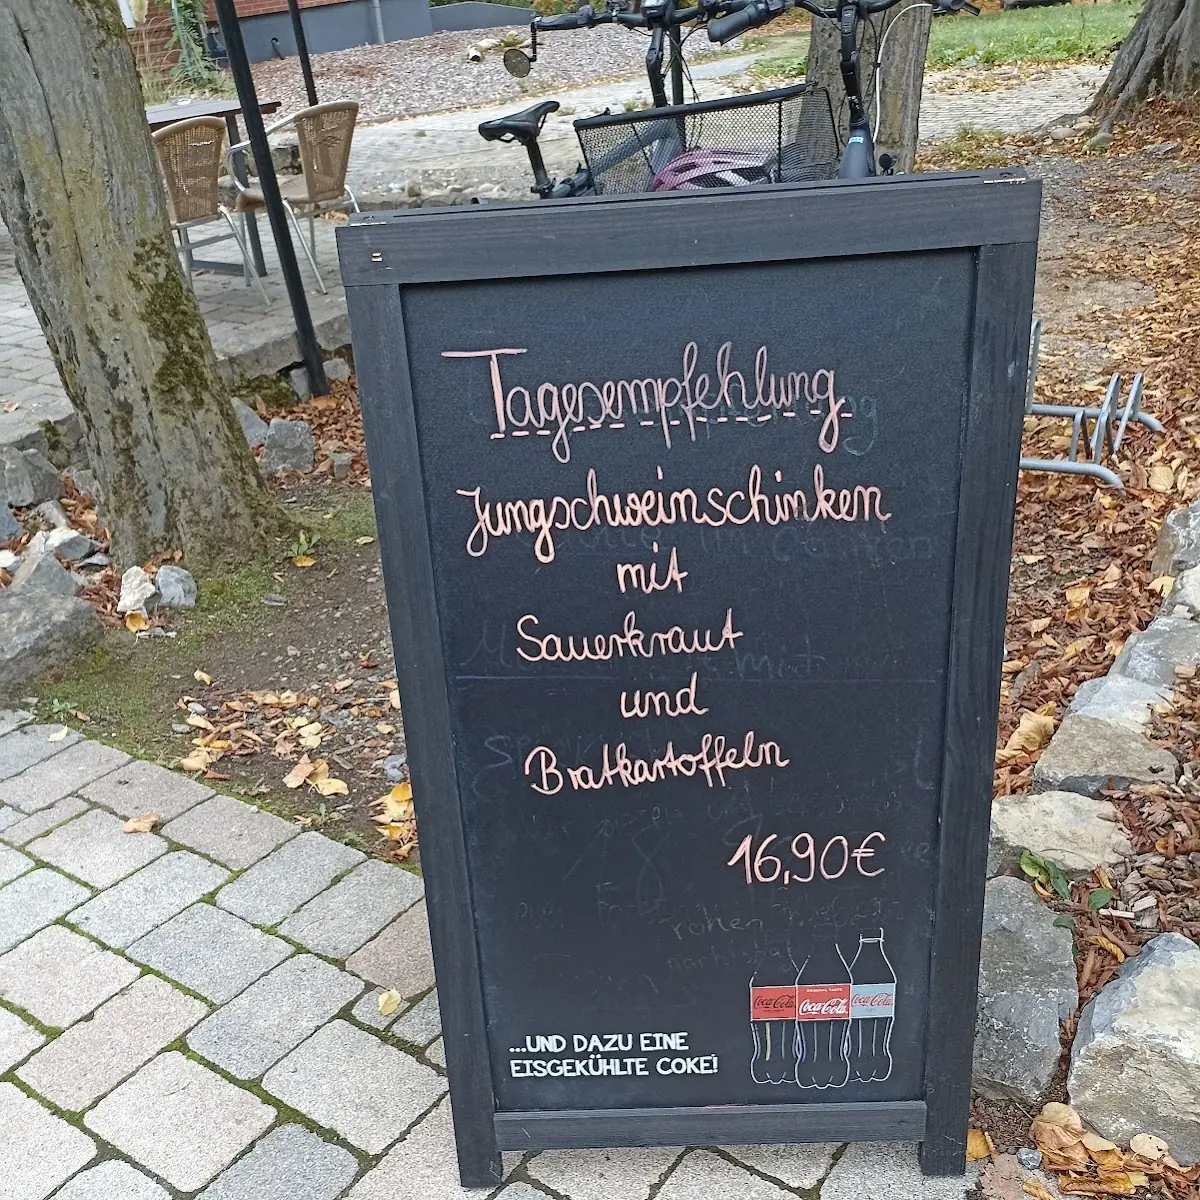 Tagesempfehlung
Jungschweinschinken
mit
Sauerkraut
und
Bratkartoffeln
16,90€
ORIGINAL TASTE
Coca-Cola Coca-Cola Coca-Cola
...UND DAZU EINE
EISGEKÜHLTE COKE!